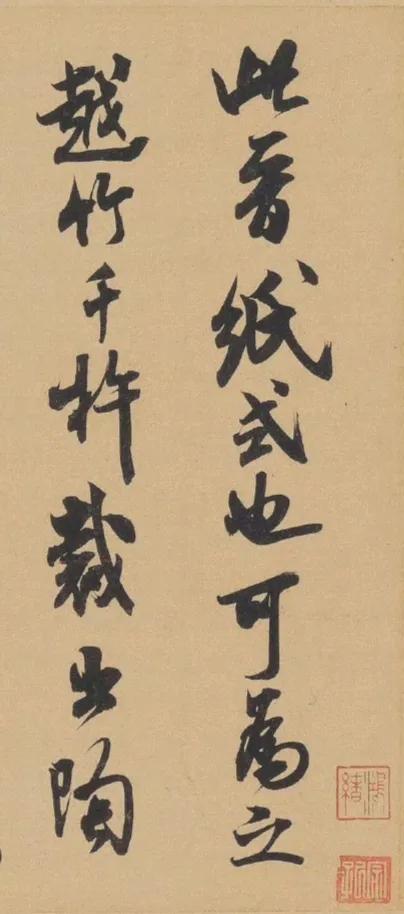 此晉紙式也可為之
越竹千杵裁出陶
鴻緒